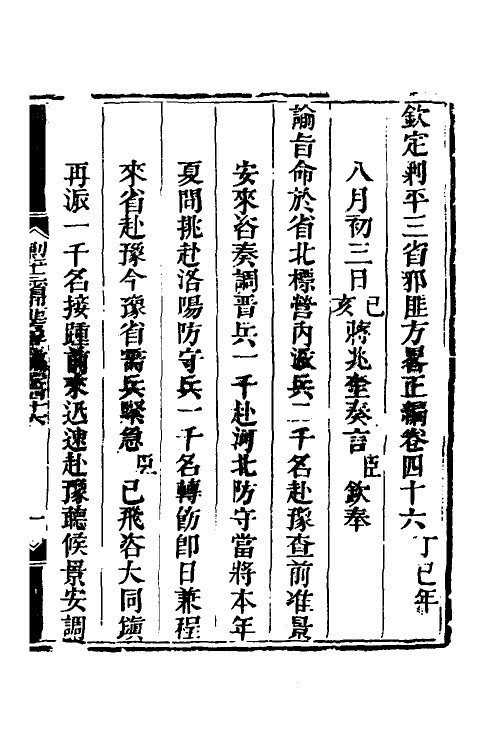 欽定剿平三省邪匪方畧正編卷四十六丁巳年
八月初三日己亥蔣兆奎奏言臣欽奉
諭旨命於省北標營內派兵一二千名赴豫查前准景
安來咨奏調晉兵一千赴河北防守當將本年
夏間挑赴洛陽防守兵一千名轉飭卽日兼程
來省赴豫今豫省需兵緊急臣已飛咨大同鎮
再派一千名接踵前來迅速赴豫聽候景安調
一